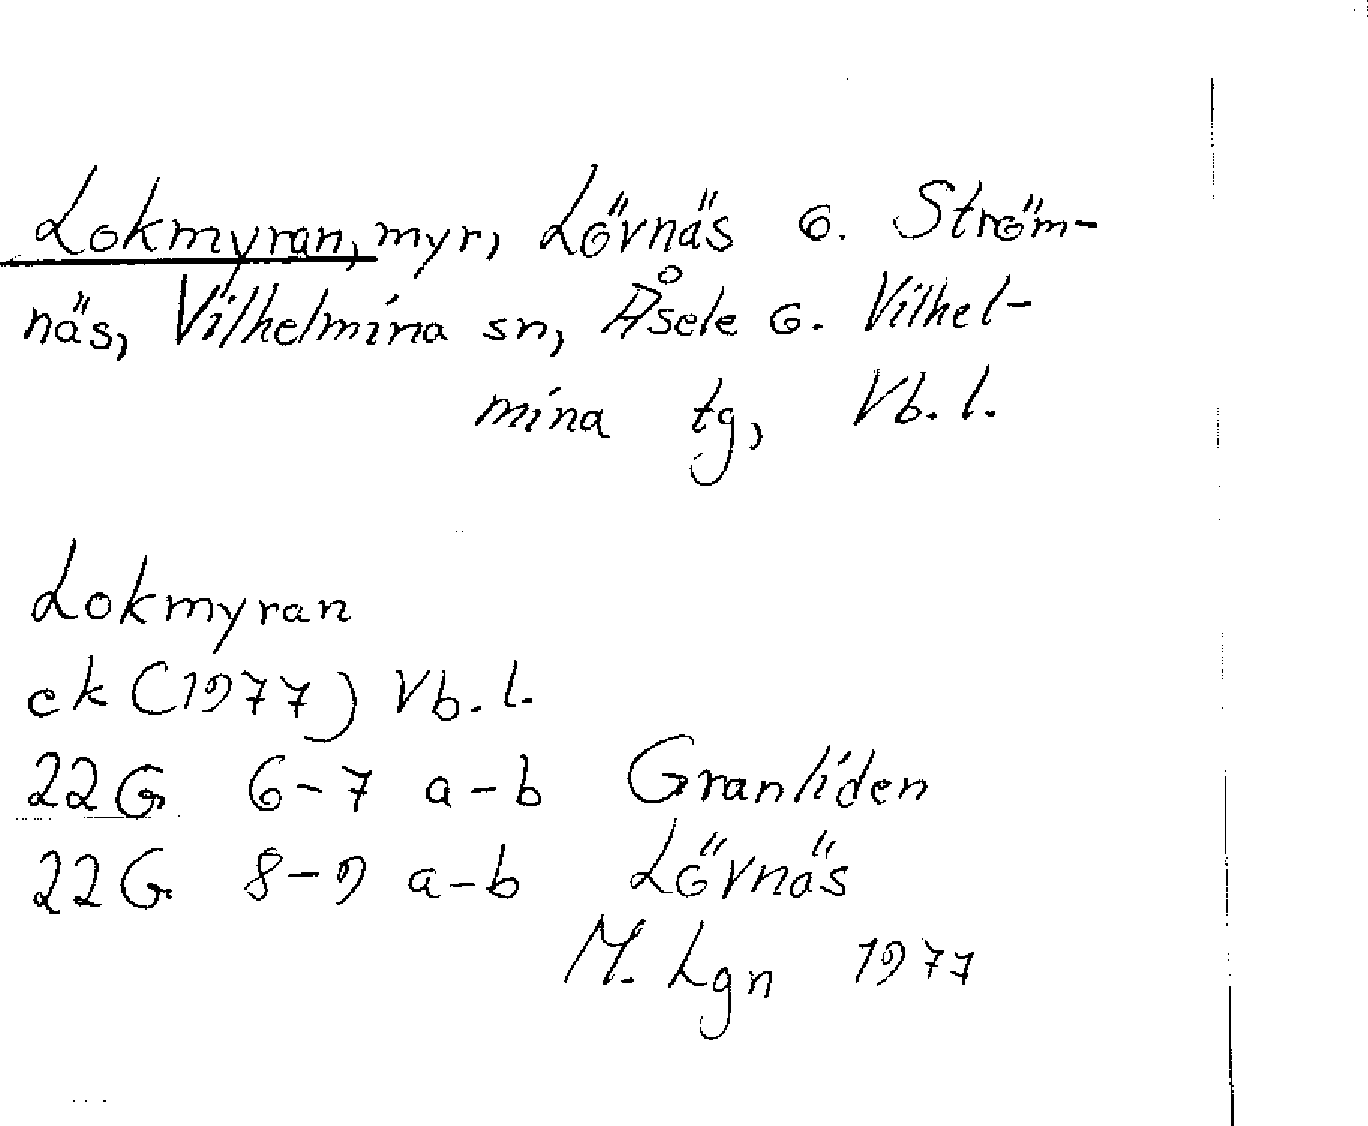 Lokmyran, myr, Lövnäs o. Ström-
näs, Vilhelmina sn, Åsele o. Vilhel-
mina tg, Vb. l.
Lokmyran
ek (1977) Vb. l.
22G 6-7 a-b Granliden
22G 8-9 a-b Lövnäs
M. Lgn 1977